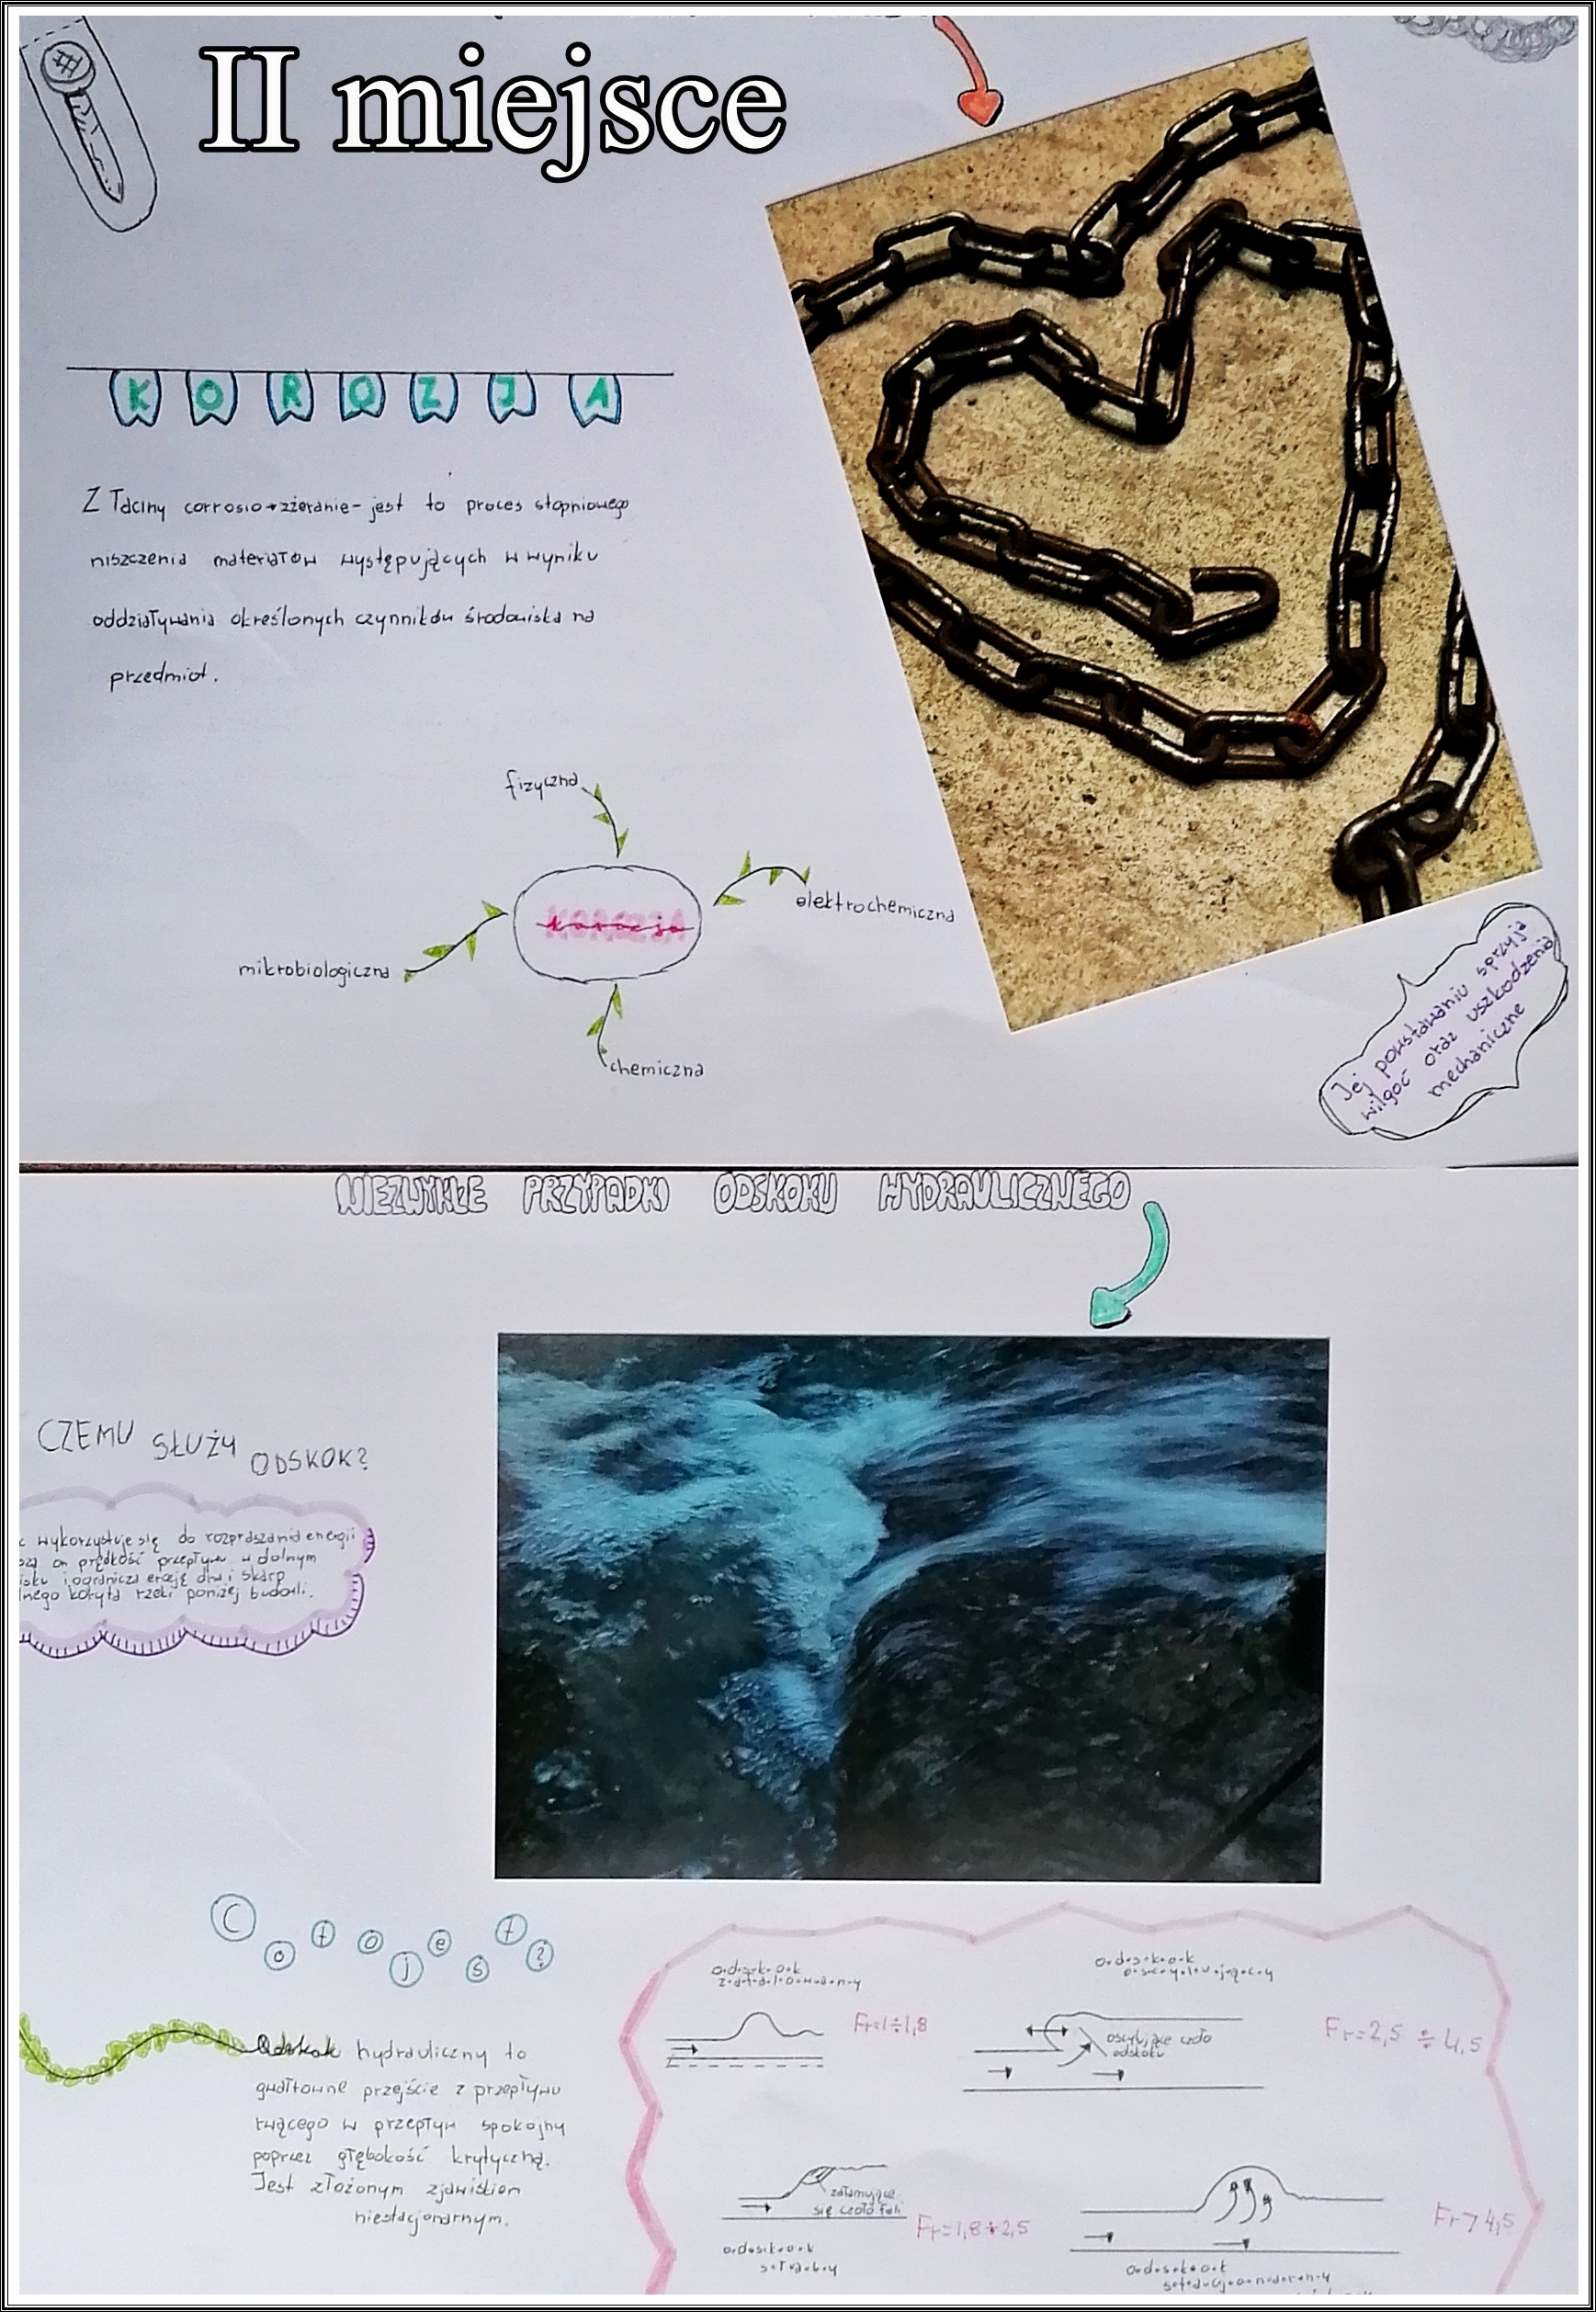 II miejsce
KOROZJA
Z łaciny corrosio → zżeranie - jest to proces stopniowego
niszczenia materiałów występujących w wyniku
oddziaływania określonych czynników środowiska na
przedmiot.
fizyczna
elektrochemiczna
korozja
mikrobiologiczna
chemiczna
Jej powstawaniu sprzyja
wilgoć oraz uszkodzenia
mechaniczne
NIEZWYKŁE PRZYPADKI ODSKOKU HYDRAULICZNEGO
CZEMU SŁUŻY ODSKOK?
wykorzystuje się do rozpraszania energii
on prędkość przepływu w dolnym
i ogranicza erozję dna i skarp
koryta rzeki poniżej budowli.
Co to jest?
Odskok hydrauliczny to
gwałtowne przejście z przepływu
rwącego w przepływ spokojny
poprzez głębokość krytyczną.
Jest złożonym zjawiskiem
niestacjonarnym.
odskok
zafalowany
Fr=1÷1,8
odskok
oscylujący
oscylujące czoło
odskoku
Fr=2,5 ÷ 4,5
załamujące
się czoło fali
Fr=1,8÷2,5
odskok
słaby
Fr>4,5
odskok
stacjonarny